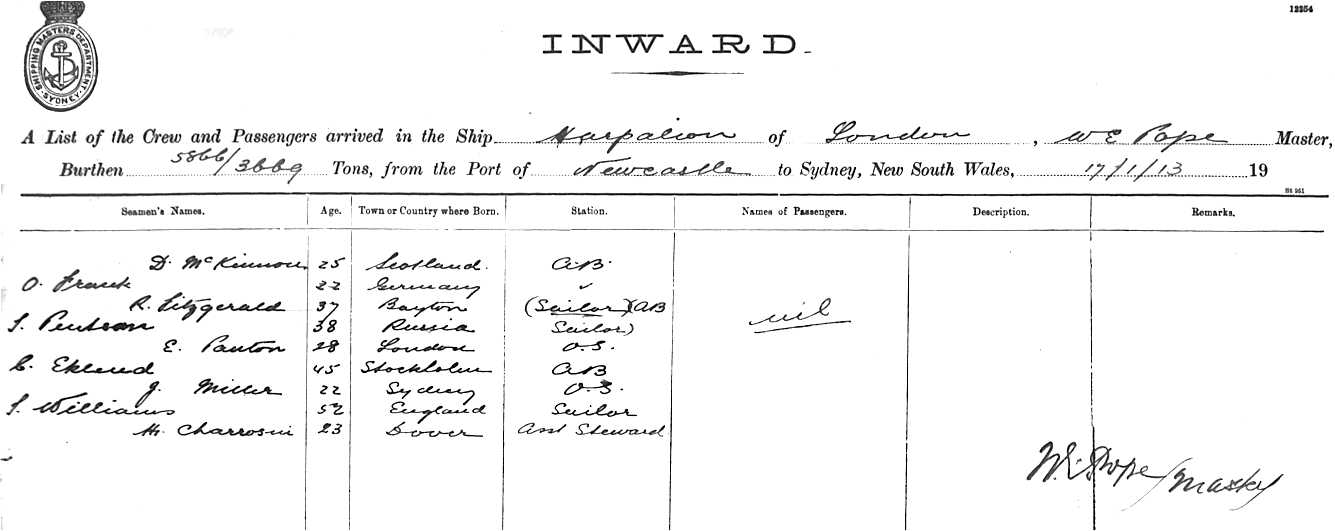 12254
SHIPPING MASTERS DEPARTMENT
SYDNEY
INWARD.
A List of the Crew and Passengers arrived in the Ship Harpalion of London, W E Pope Master,
Burthen 5866/3669 Tons, from the Port of Newcastle to Sydney, New South Wales, 17/1/13 19
Seamen's Names. Age. Town or Country where Born. Station. Names of Passengers. Description. Remarks.
D. McKinnon 25 Scotland. A.B.
O. Frank 22 Germany "
R. Fitzgerald 37 (Sailor)(AB
nil
38 Russia Sailor)
E. Panton 28 London O.S.
C. Eklund 45 Stockholm AB
J. Miller 22 Sydney O.S.
Williams 52 England Sailor
23 Dover Asst Steward
W.E. Pope / Master